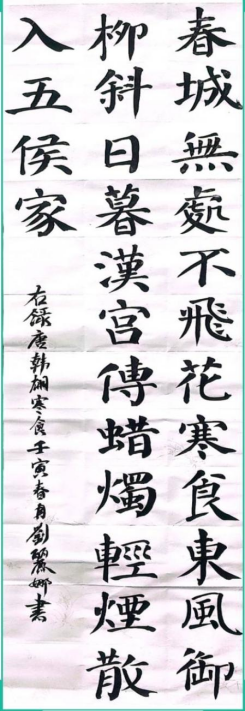 春城無處不飛花寒食東風御
柳斜日暮漢宮傳蜡燭輕煙散
入五侯家
右錄唐韩翃寒食壬寅春月劉麗娜書